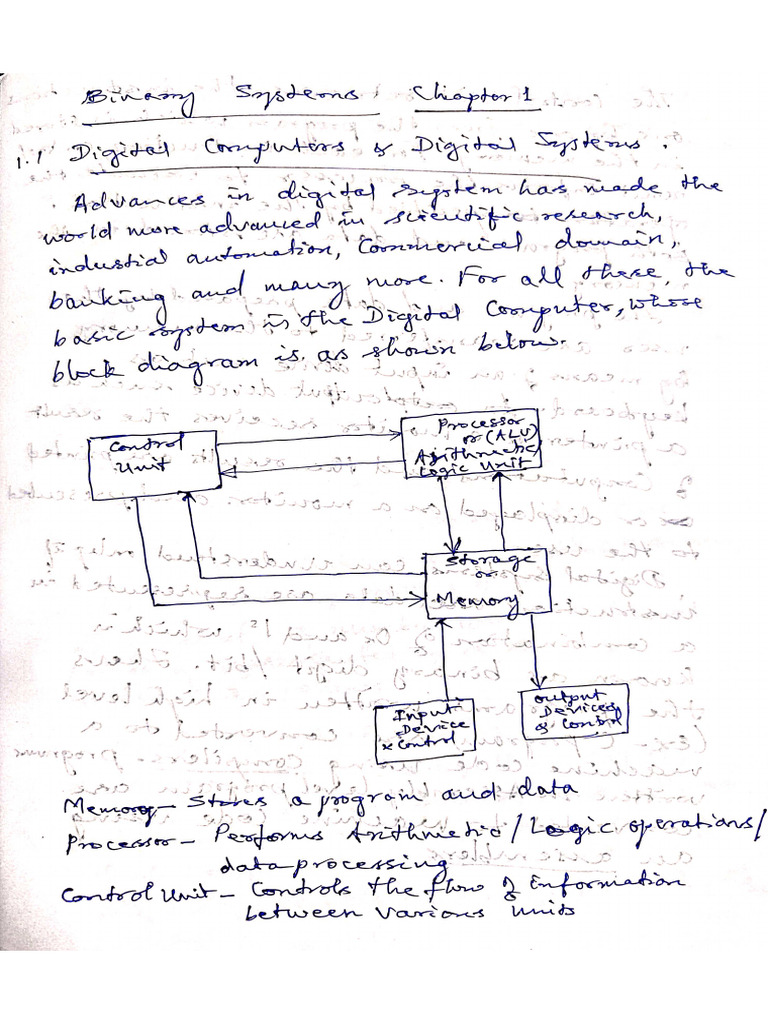 Binary Systems Chapter 1
1.1 Digital Computers & Digital Systems.
Advances in digital system has made the
world more advanced in scientific research,
industial automation, Commercial domain,
banking and many more. For all these, the
basic system is the Digital Computer, whose
block diagram is as shown below.
Control
Unit
Processor
or (ALU)
Arithmetic
Logic Unit
Storage
or
Memory
Input
Device
& Control
Output
Devices
& Control
Memory – Stores a program and data
Processor – Performs Arithmetic / Logic operations/
data processing
Control Unit – Controls the flow of Information
between various units